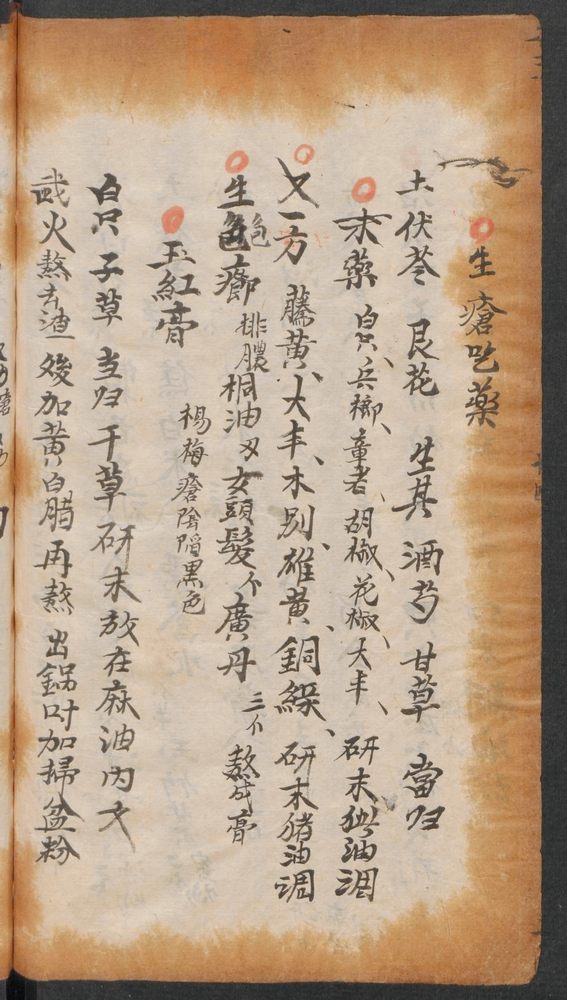 生瘡吃藥
土伏苓 艮花 生芪 酒芍 甘草 當归
末藥 白只、兵榔、童者、胡椒、花椒、大丰、研末 油調
又一方 藤黄、大丰、木别、雄黄、銅緑、研末猪油調
生色瘤 排膿 桐油 女頭髮 个 廣丹 三个 熬成膏
玉紅膏 楊梅瘡陰陷黑色
白只 子草 当归 干草 研末放在麻油内文
武火熬去渣 後加黄白腊再熬 出鍋时加掃盆粉